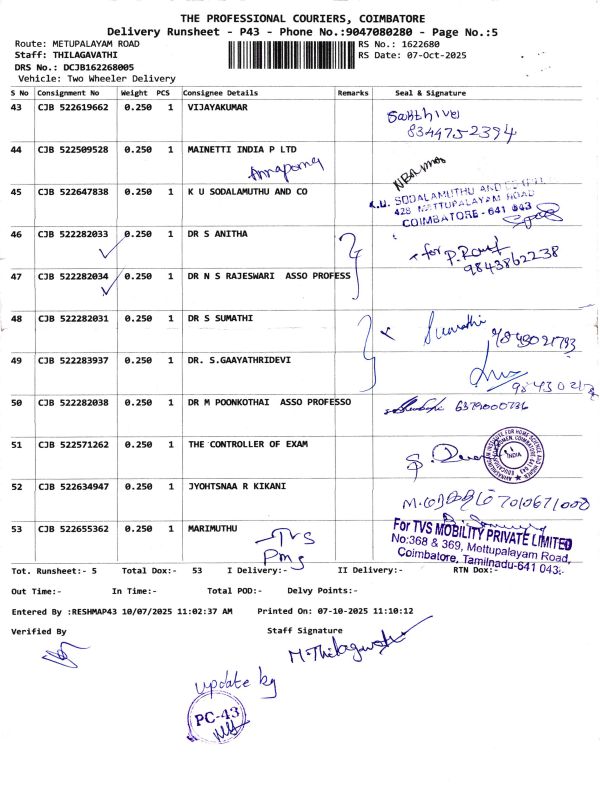 THE PROFESSIONAL COURIERS, COIMBATORE
Delivery Runsheet - P43 - Phone No.:9047080280 - Page No.:5
Route: METUPALAYAM ROAD RS No.: 1622680
Staff: THILAGAVATHI RS Date: 07-Oct-2025
DRS No.: DCJB162268005
Vehicle: Two Wheeler Delivery
S No Consignment No Weight PCS Consignee Details Remarks Seal & Signature
43 CJB 522619662 0.250 1 VIJAYAKUMAR
Sakthivel
834475-2394
44 CJB 522509528 0.250 1 MAINETTI INDIA P LTD
Annaporna
45 CJB 522647838 0.250 1 K U SODALAMUTHU AND CO
K.U. SODALAMUTHU AND CO
428 METTUPALAYAM ROAD
COIMBATORE - 641 043
46 CJB 522282033 0.250 1 DR S ANITHA
for
9843862238
47 CJB 522282034 0.250 1 DR N S RAJESWARI ASSO PROFESS
48 CJB 522282031 0.250 1 DR S SUMATHI
Sumathi
9843021793
49 CJB 522283937 0.250 1 DR. S.GAAYATHRIDEVI
50 CJB 522282038 0.250 1 DR M POONKOTHAI ASSO PROFESSO
6379000736
51 CJB 522571262 0.250 1 THE CONTROLLER OF EXAM
INDIA
52 CJB 522634947 0.250 1 JYOHTSNAA R KIKANI
7010671008
53 CJB 522655362 0.250 1 MARIMUTHU
TVS
Pmg
For TVS MOBILITY PRIVATE LIMITED
No:368 & 369, Mettupalayam Road,
Coimbatore, Tamilnadu-641 043.
Tot. Runsheet:- 5 Total Dox:- 53 I Delivery:- II Delivery:- RTN Dox:-
Out Time:- In Time:- Total POD:- Delvy Points:-
Entered By :RESHMAP43 10/07/2025 11:02:37 AM Printed On: 07-10-2025 11:10:12
Verified By Staff Signature
M.Thilagavathi
update by
PC-43